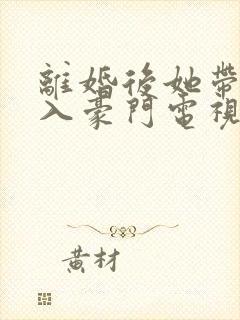 離婚後她帶
入豪門電視
黃材